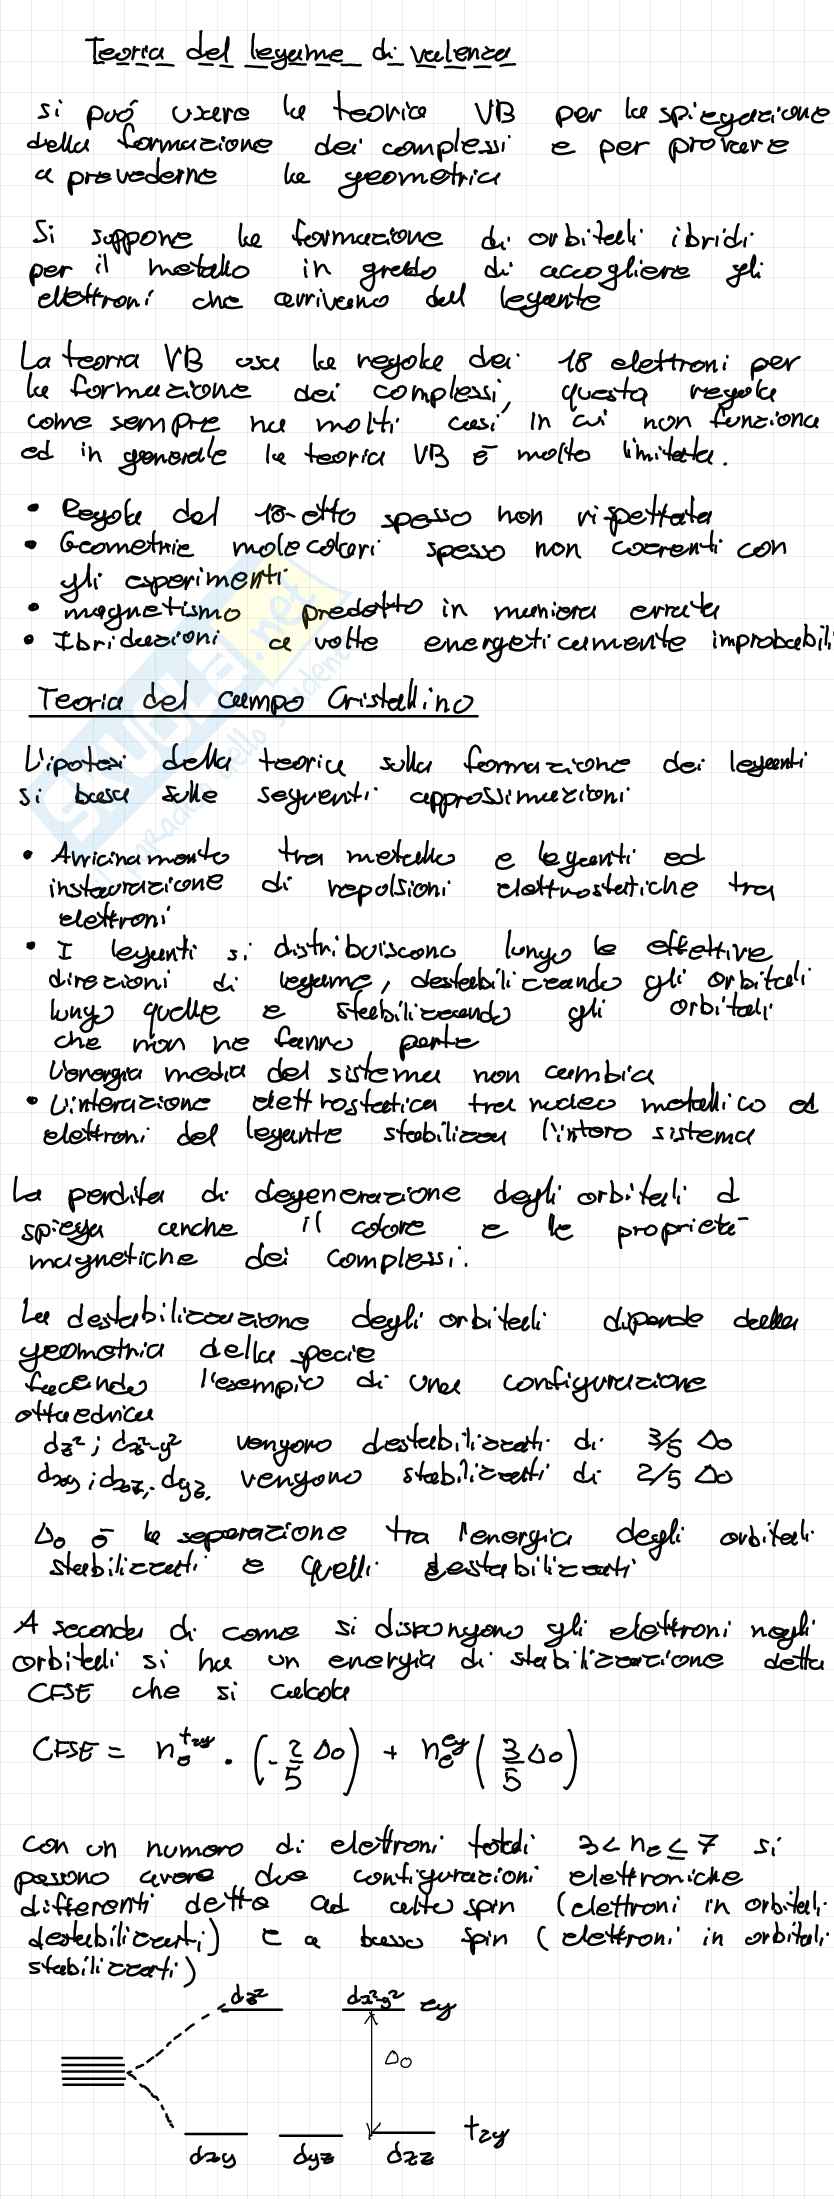 Teoria del legame di valenza
si può usare la teoria VB per la spiegazione
della formazione dei complessi e per provare
a prevederne la geometria
Si suppone la formazione di orbitali ibridi
per il metallo in grado di accogliere gli
elettroni che arrivano dal legante
La teoria VB usa la regola dei 18 elettroni per
la formazione dei complessi, questa regola
come sempre ha molti casi in cui non funziona
ed in generale la teoria VB è molto limitata.
• Regola del 18-etto spesso non rispettata
• Geometrie molecolari spesso non coerenti con
gli esperimenti
• magnetismo predetto in maniera errata
• Ibridazioni a volte energeticamente improbabili
Teoria del campo Cristallino
L'ipotesi della teoria sulla formazione dei leganti
si basa sulle seguenti approssimazioni
• Avvicinamento tra metallo e leganti ed
instaurazione di repulsioni elettrostatiche tra
elettroni
• I leganti si distribuiscono lungo le effettive
direzioni di legame, destabilizzando gli orbitali
lungo quelle e stabilizzando gli orbitali
che non ne fanno parte
L'energia media del sistema non cambia
• L'interazione elettrostatica tra nucleo metallico ed
elettroni del legante stabilizza l'intero sistema
La perdita di degenerazione degli orbitali d
spiega anche il colore e le proprietà
magnetiche dei complessi.
La destabilizzazione degli orbitali dipende dalla
geometria della specie
facendo l'esempio di una configurazione
ottaedrica
dz² ; dx²-y² vengono destabilizzati di 3/5 Δo
dxy ; dxz, dyz, vengono stabilizzati di 2/5 Δo
Δo è la separazione tra l'energia degli orbitali
stabilizzati e quelli destabilizzati
A seconda di come si dispongono gli elettroni negli
orbitali si ha un energia di stabilizzazione detta
CFSE che si calcola
CFSE = n_e^{t2g} · (-2/5 Δo) + n_e^{eg} (3/5 Δo)
Con un numero di elettroni totali 3 < ne ≤ 7 si
possono avere due configurazioni elettroniche
differenti dette ad alto spin (elettroni in orbitali
destabilizzati) e a basso spin (elettroni in orbitali
stabilizzati)
dz² dx²-y² eg
Δo
t2g
dxy dyz dxz
SKUOLA.net